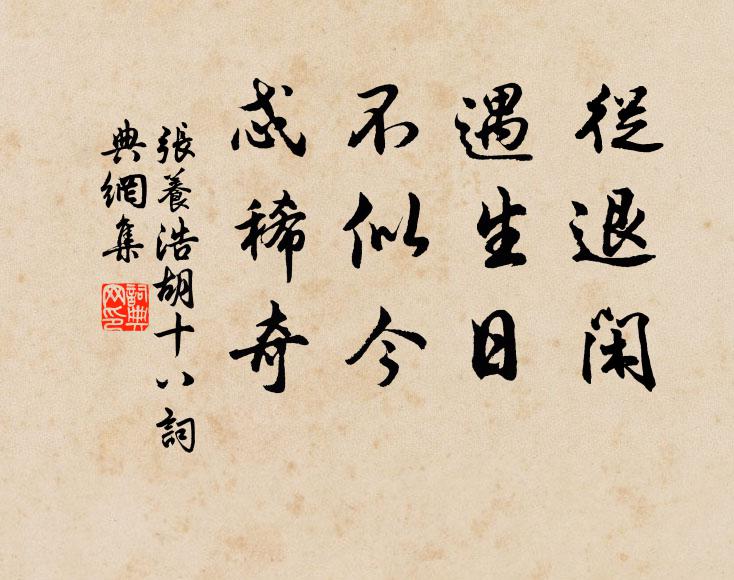 從退閑
遇生日
不似今
忒稀奇
張養浩胡十八詞
典網集
詞典
网印